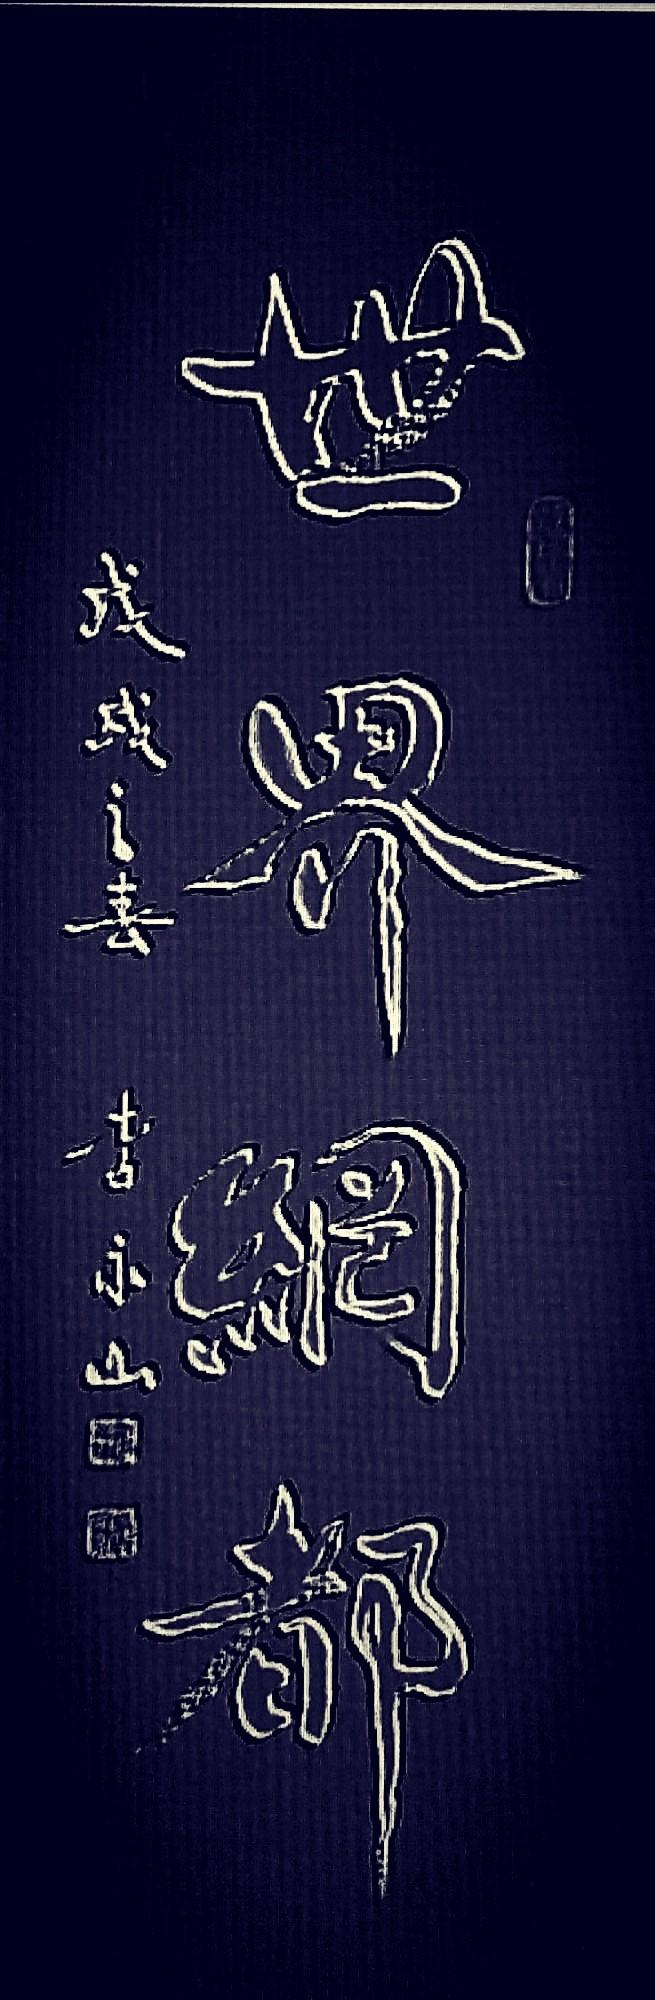 世界網都
戊戌之春 書 永山